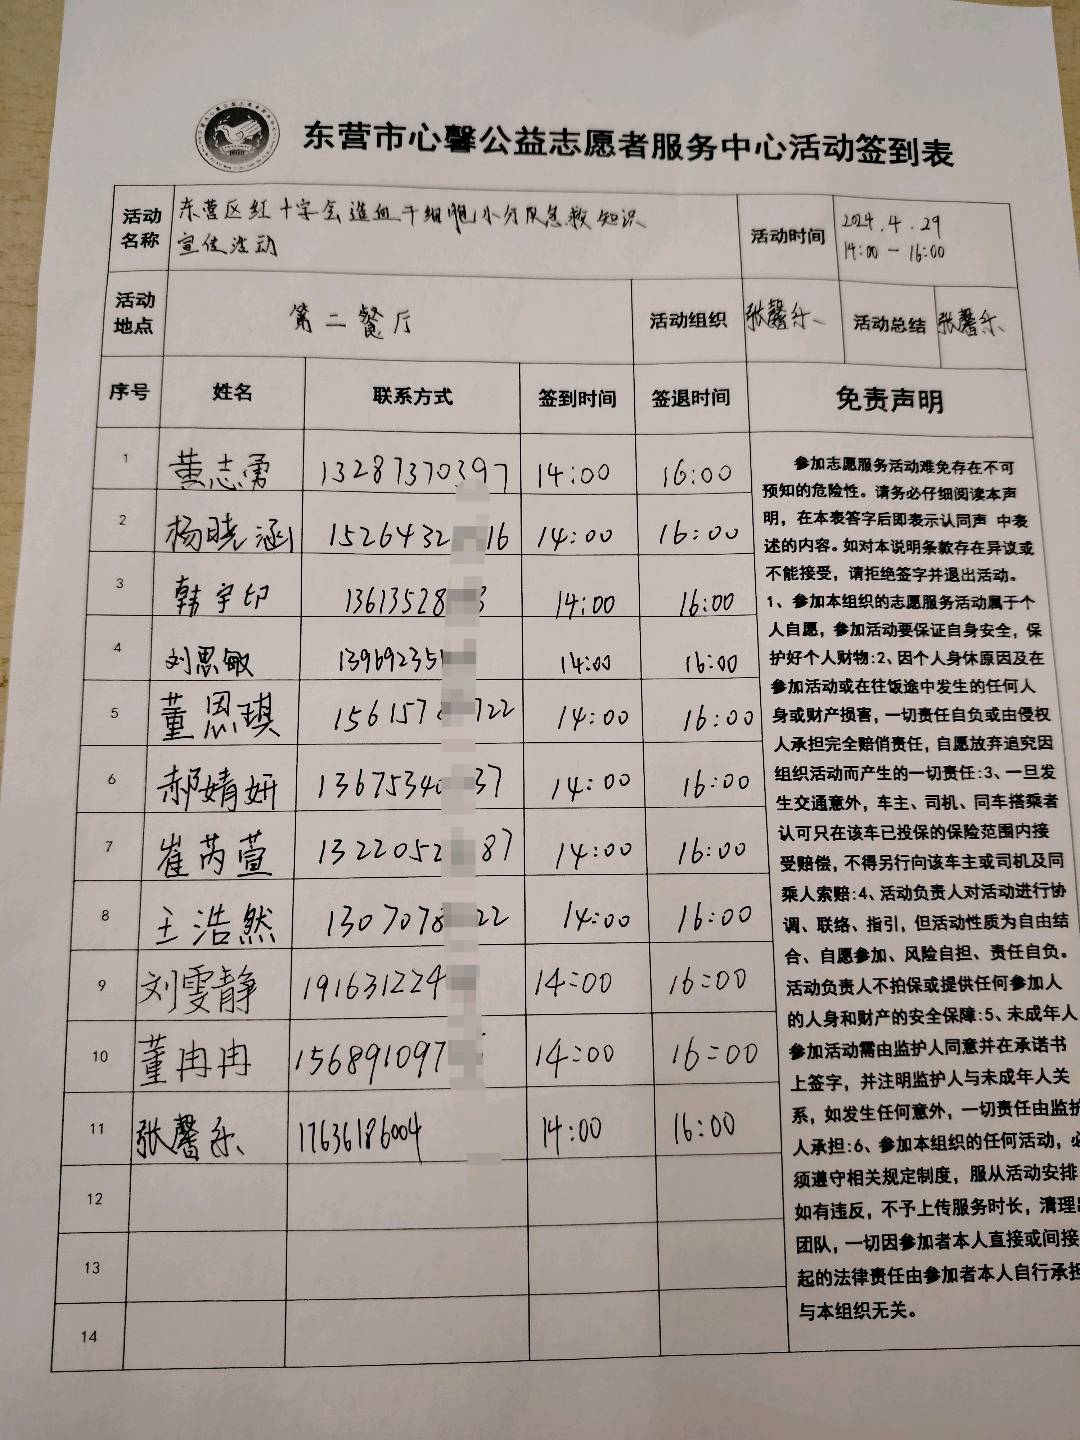 东营市心馨公益志愿者服务中心活动签到表
活动名称 东营区红十字会造血干细胞小分队急救知识
宣传活动
活动时间 2024.4.29
14:00-16:00
活动地点 第二餐厅 活动组织 张馨乐 活动总结 张馨乐
序号 姓名 联系方式 签到时间 签退时间 免责声明
1 黄志勇 13287370397 14:00 16:00
2 杨晓涵 1526432 16 14:00 16:00
3 韩宇印 13613528 3 14:00 16:00
4 刘思敏 13969235 14:00 16:00
5 董恩琪 156157 722 14:00 16:00
6 郝婧妍 1367534 37 14:00 16:00
7 崔芮萱 1322052 87 14:00 16:00
8 王浩然 1307078 22 14:00 16:00
9 刘雯静 191631224 14:00 16:00
10 董冉冉 156891097 14:00 16:00
11 张馨乐 17636186004 14:00 16:00
12
13
14
参加志愿服务活动难免存在不可
预知的危险性。请务必仔细阅读本声
明，在本表答字后即表示认同声 中表
述的内容。如对本说明条款存在异议或
不能接受，请拒绝签字并退出活动。
1、参加本组织的志愿服务活动属于个
人自愿，参加活动要保证自身安全，保
护好个人财物:2、因个人身休原因及在
参加活动或在往饭途中发生的任何人
身或财产损害，一切责任自负或由侵权
人承担完全赔偿责任，自愿放弃追究因
组织活动而产生的一切责任:3、一旦发
生交通意外，车主、司机、同车搭乘者
认可只在该车已投保的保险范围内接
受赔偿，不得另行向该车主或司机及同
乘人索赔:4、活动负责人对活动进行协
调、联络、指引，但活动性质为自由结
合、自愿参加、风险自担、责任自负。
活动负责人不拍保或提供任何参加人
的人身和财产的安全保障:5、未成年人
参加活动需由监护人同意并在承诺书
上签字，并注明监护人与未成年人关
系，如发生任何意外，一切责任由监护
人承担:6、参加本组织的任何活动，必
须遵守相关规定制度，服从活动安排
如有违反，不予上传服务时长，清理出
团队，一切因参加者本人直接或间接
起的法律责任由参加者本人自行承担
与本组织无关。